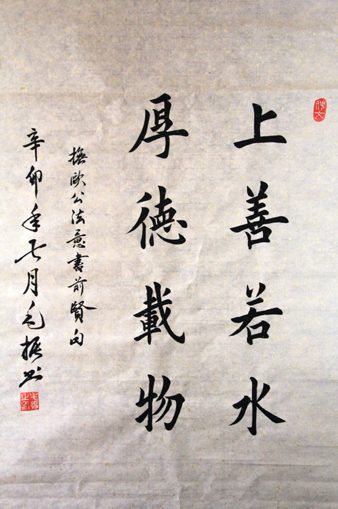 上善若水
厚德載物
撫歐公法意書前賢句
辛卯年七月毛振书